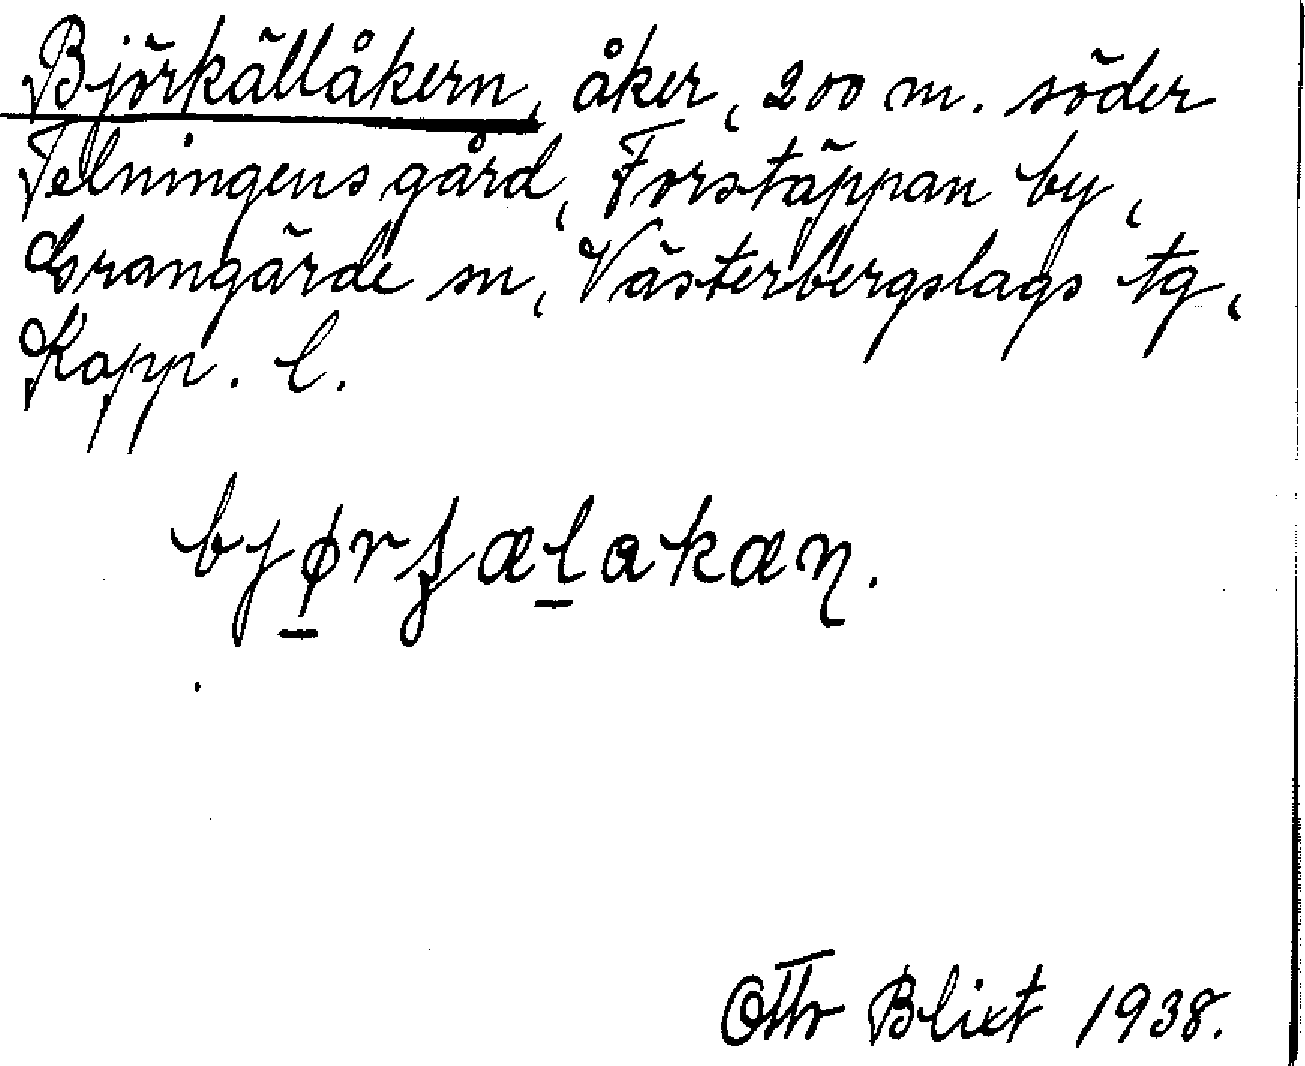 Björkällåkern, åker, 200 m. söder
Telningens gård, Forstäppan by,
Grangärde sn, Västerbergslags tg,
Kopp. l.
bjørʂælakæɳ.
Otto Blixt 1938.